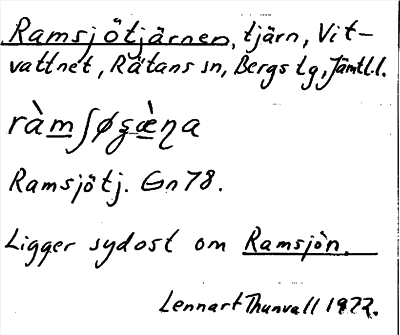 Ramsjötjärnen, tjärn, Vit-
vattnet, Rätans sn, Bergs tg, Jämtl.l.
ràmʃøʂæ̀ŋa
Ramsjötj. Gn 78.
Ligger sydost om Ramsjön.
Lennart Thunvall 1922.